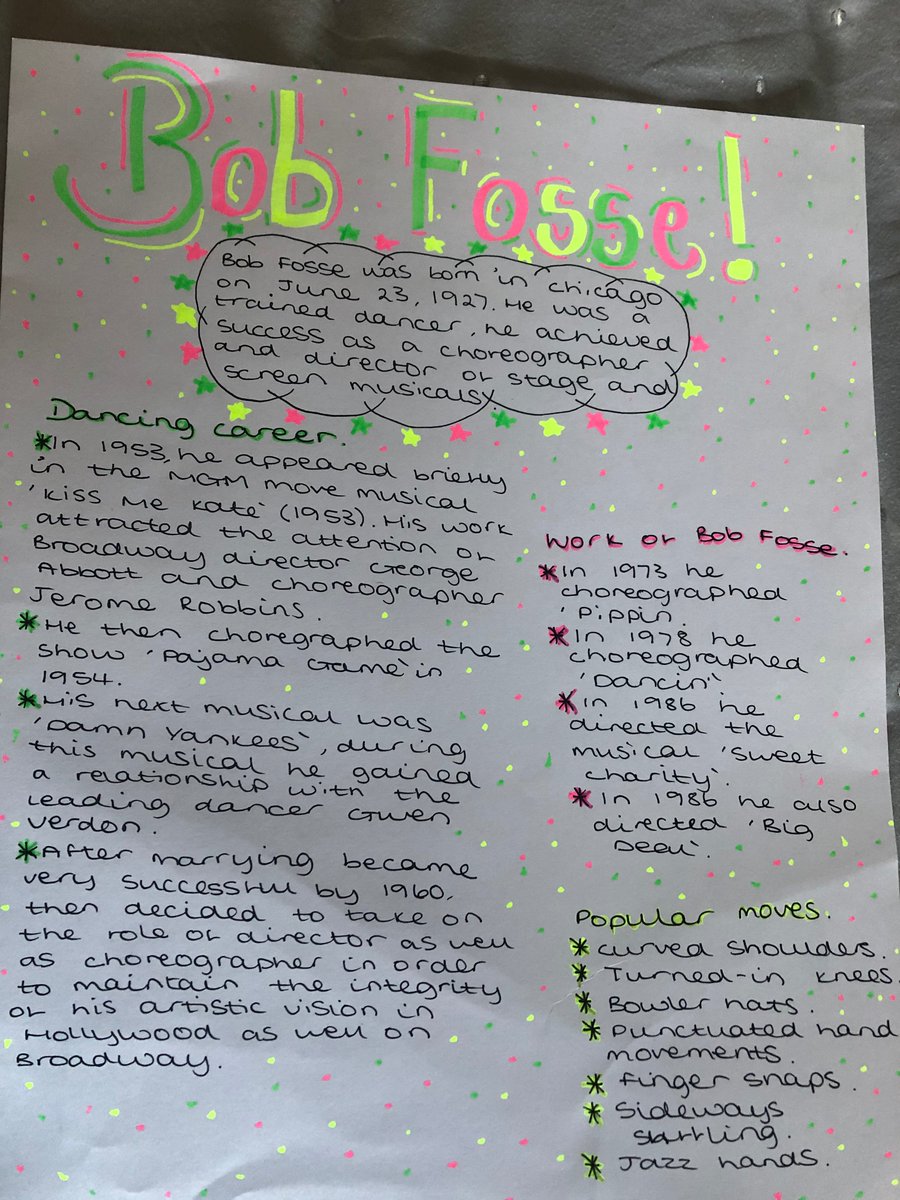 Bob Fosse!
Bob Fosse was born in Chicago
on June 23, 1927. He was a
trained dancer, he achieved
success as a choreographer
and director of stage and
screen musicals.
Dancing career.
*In 1953, he appeared briefly
in the MGM move musical
'Kiss Me Kate' (1953). His work
attracted the attention of
Broadway director George
Abbott and choreographer
Jerome Robbins.
*He then choregraphed the
show 'Pajama Game' in
1954.
*His next musical was
'Damn Yankees', during
this musical he gained
a relationship with the
leading dancer Gwen
Verdon.
*After marrying became
very successful by 1960,
then decided to take on
the role of director as well
as choreographer in order
to maintain the integrity
of his artistic vision in
Hollywood as well on
Broadway.
Work of Bob Fosse.
*In 1973 he
choreographed
'Pippin.
*In 1978 he
choreographed
'Dancin'.
*In 1986 he
directed the
musical 'Sweet
Charity'.
*In 1986 he also
directed 'Big
Deal'.
Popular moves.
*Curved shoulders.
*Turned-in knees.
*Bowler hats.
*Punctuated hand
movements.
*Finger snaps.
*Sideways
*Jazz hands.